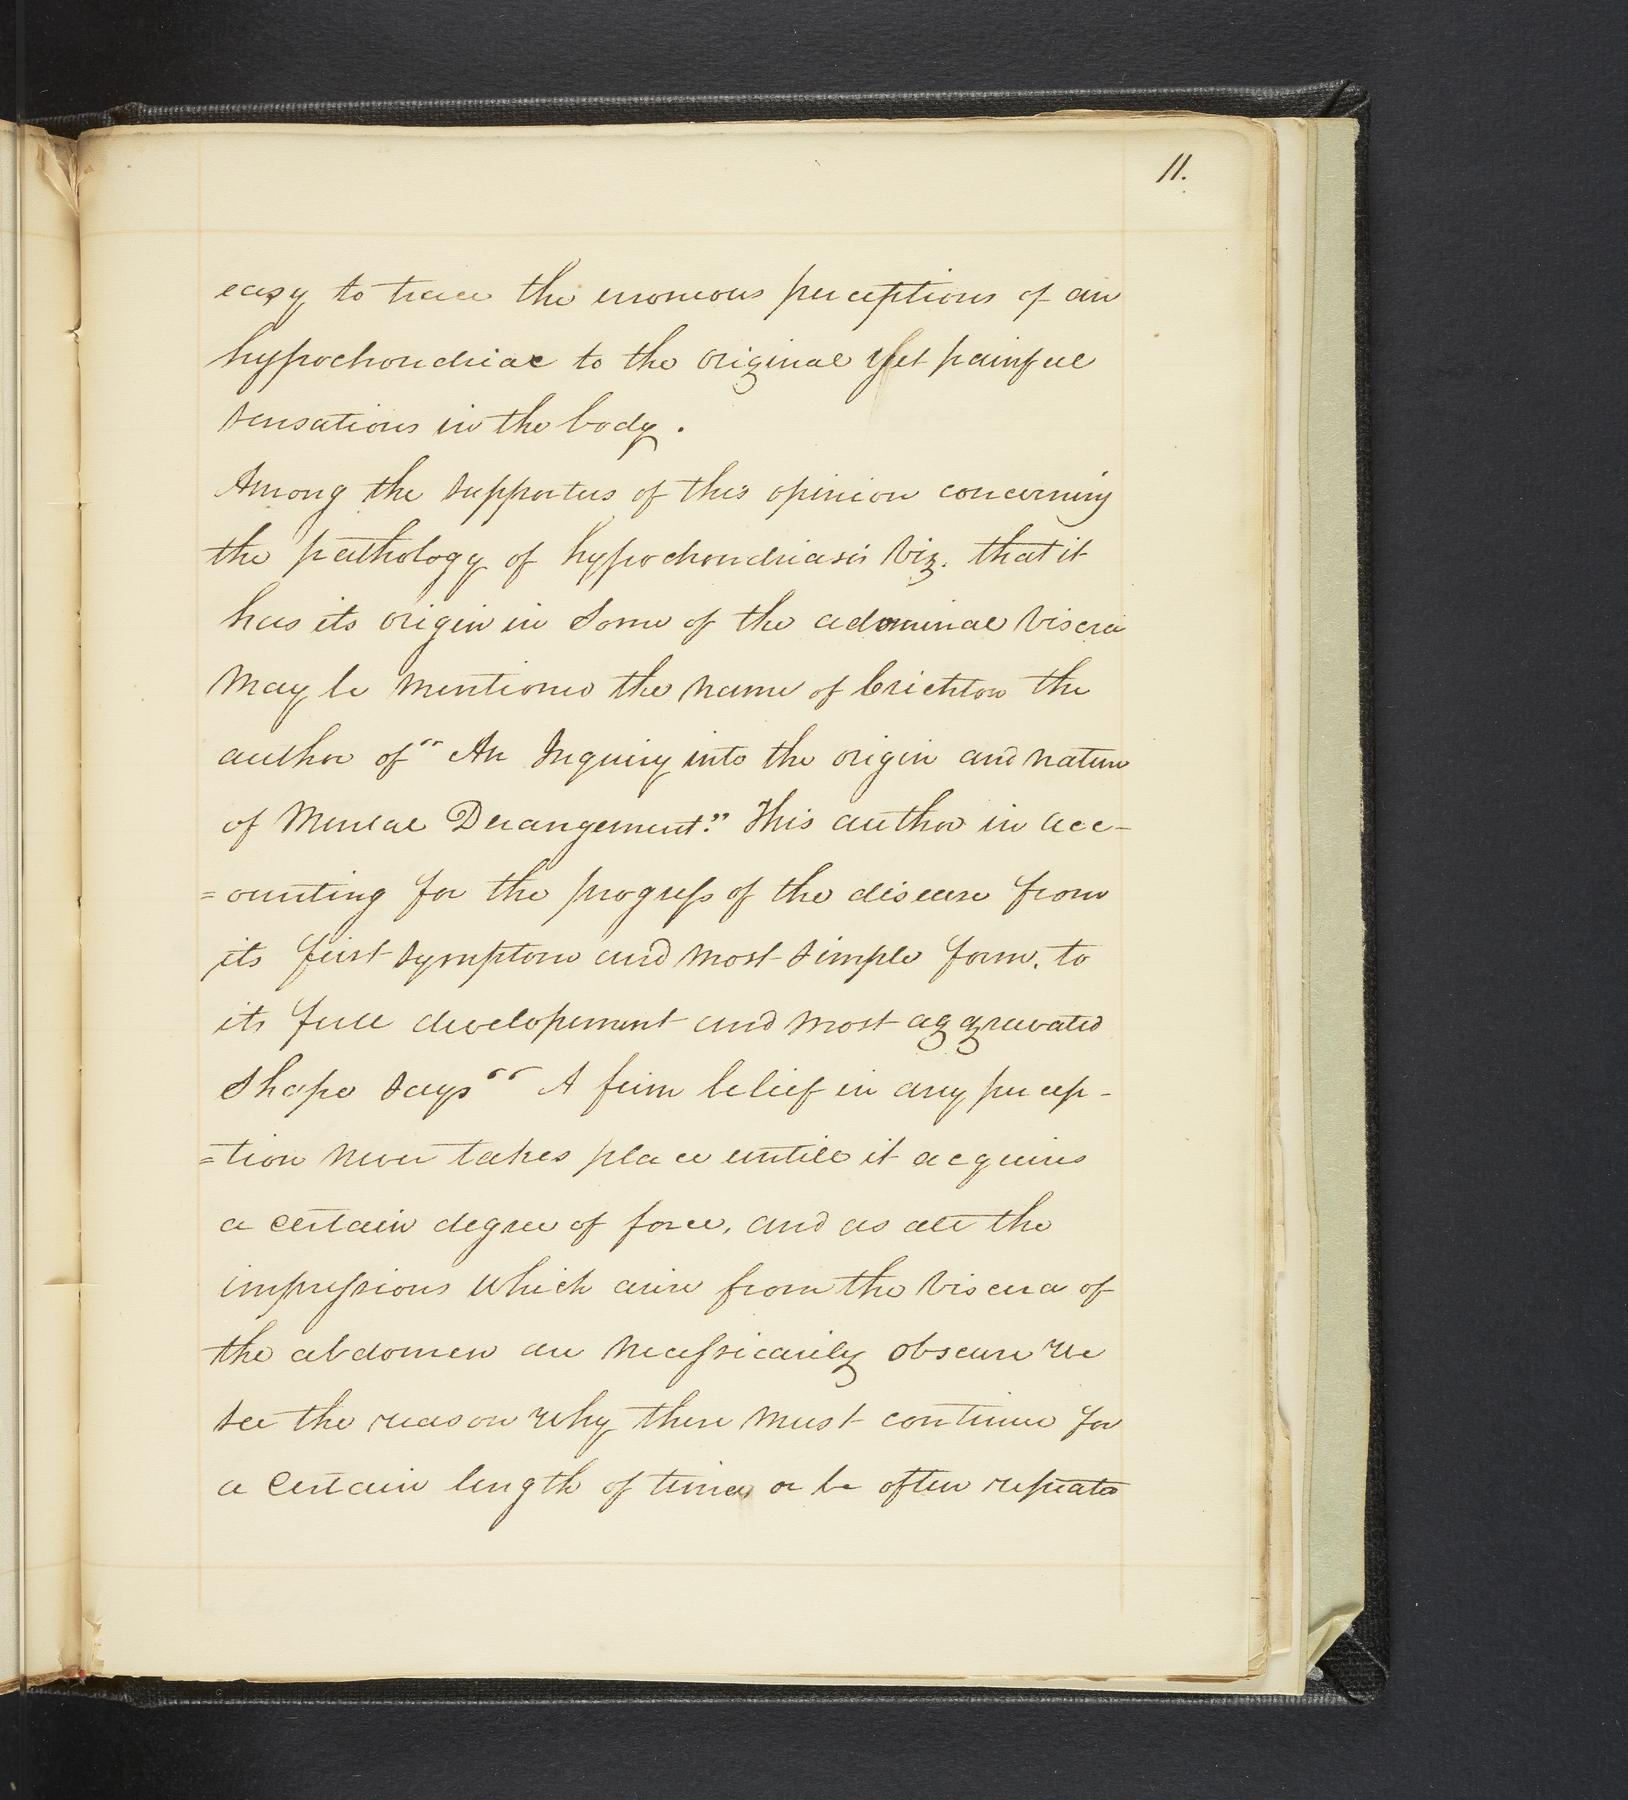 11.
easy to trace the erroneous perceptions of an
hypochondriac to the original yet painful
sensations in the body.
Among the supporters of this opinion concerning
the pathology of hypochondriasis viz. that it
has its origin in some of the adominal viscera
may be mentioned the name of Crichton the
author of "An Inquiry into the origin and nature
of Mental Derangement." This author in acc-
=ounting for the progress of the disease from
its first symptom and most simple form, to
its full developement and most aggravated
shape says "A firm belief in any percep-
=tion never takes place untill it acquires
a certain degree of force, and as all the
impressions which arise from the viscera of
the abdomen are necessicarily obscure we
see the reason why there must continue for
a certain length of time, or be often repeated